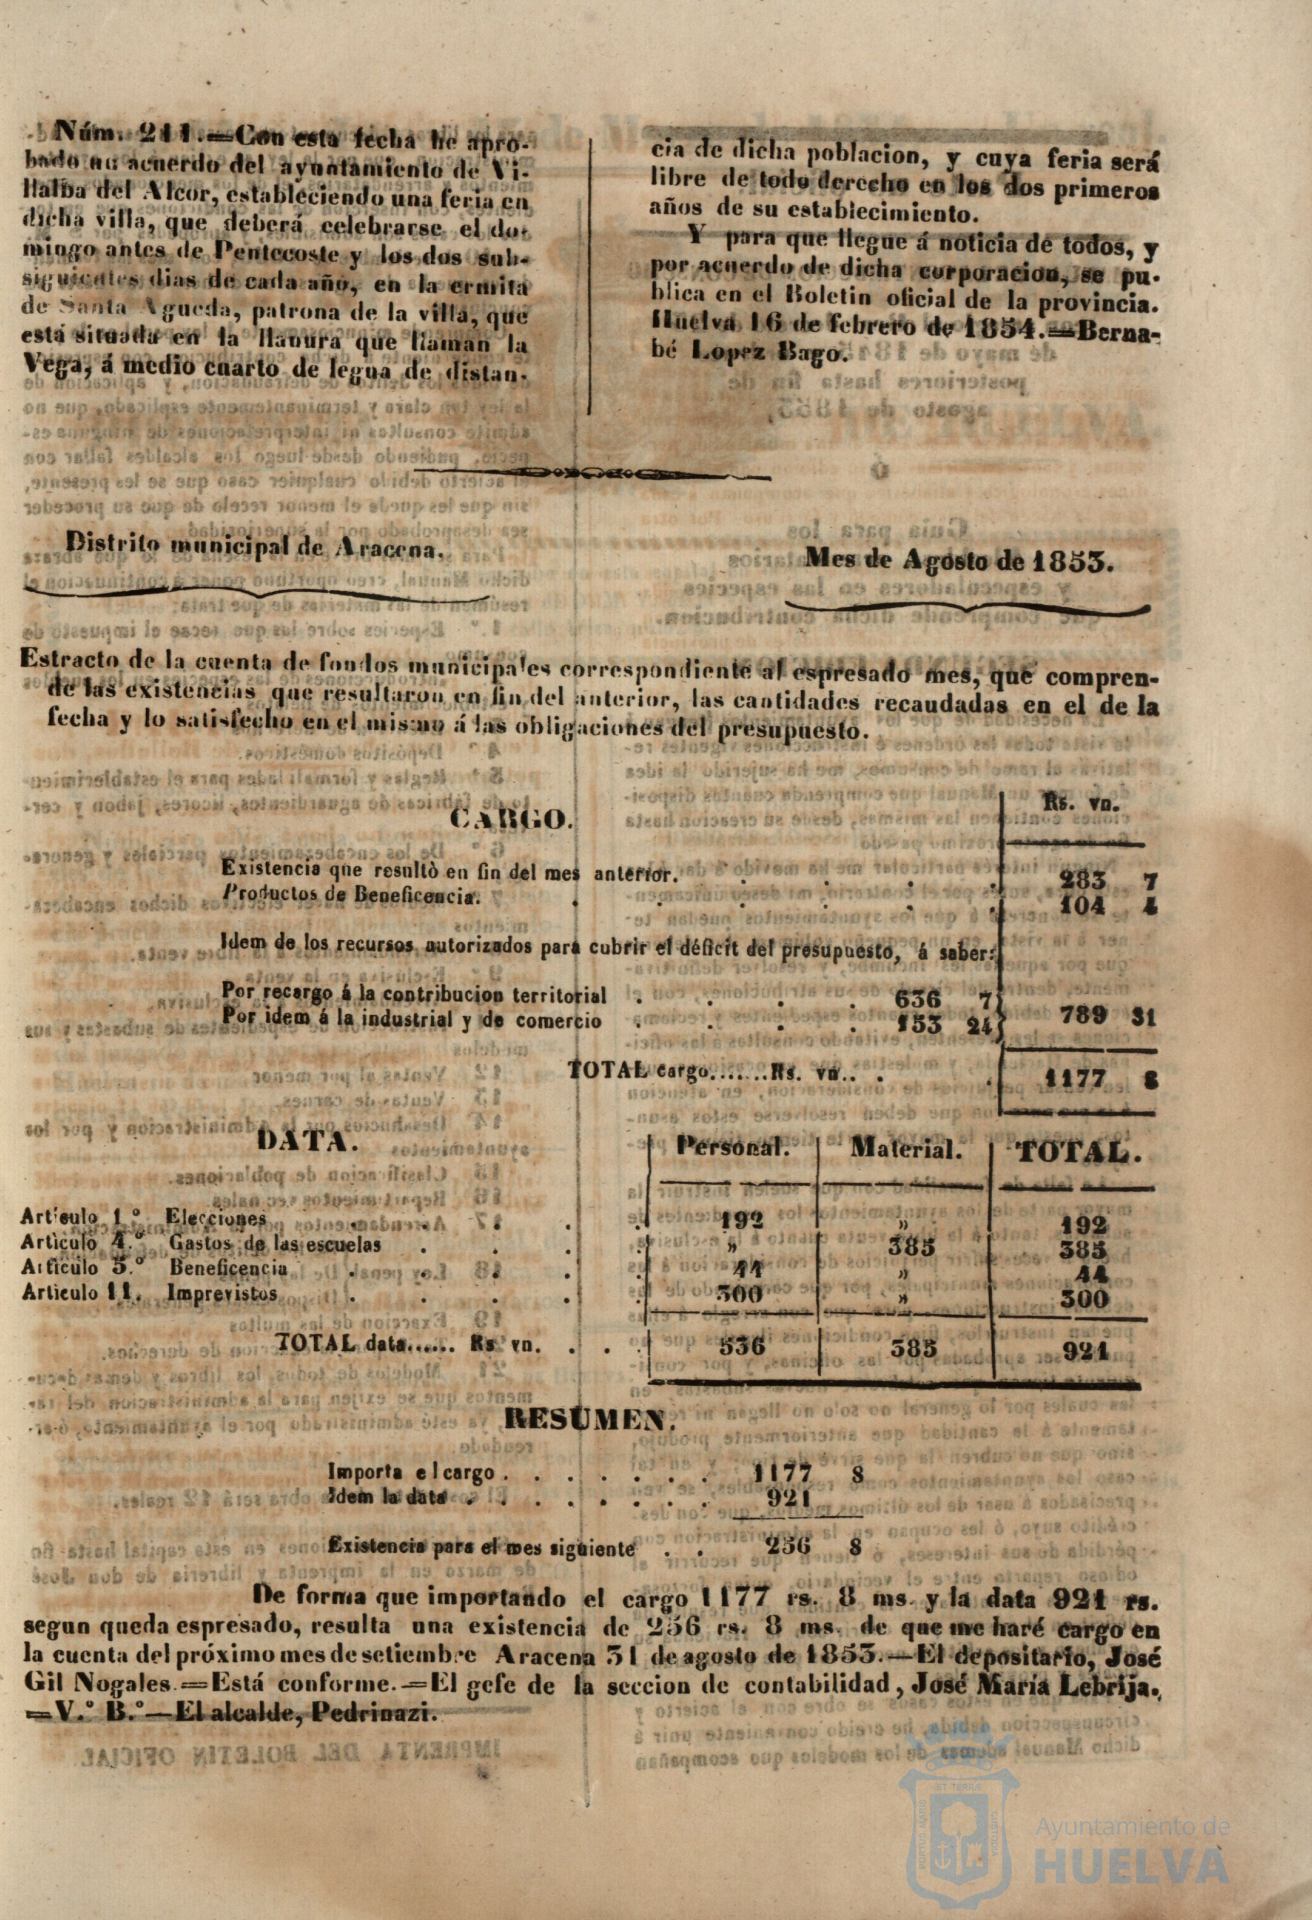 Núm. 211.=Con esta fecha he apro-
bado un acuerdo del ayuntamiento de Vi-
llalba del Alcor, estableciendo una feria en
dicha villa, que deberá celebrarse el do-
mingo antes de Pentecoste y los dos sub-
siguientes dias de cada año, en la ermita
de Santa Agueda, patrona de la villa, que
está situada en la llanura que llaman la
Vega, á medio cuarto de legua de distan-
cia de dicha poblacion, y cuya feria será
libre de todo derecho en los dos primeros
años de su establecimiento.
Y para que llegue á noticia de todos, y
por acuerdo de dicha corporacion, se pu-
blica en el Boletin oficial de la provincia.
Huelva 16 de febrero de 1854.=Berna-
bé Lopez Bago.
Distrito municipal de Aracena.
Mes de Agosto de 1853.
Estracto de la cuenta de fondos municipales correspondiente al espresado mes, que compren-
de las existencias que resultaron en fin del anterior, las cantidades recaudadas en el de la
fecha y lo satisfecho en el mismo á las obligaciones del presupuesto.
Rs. vn.
CARGO.
Existencia que resultò en fin del mes anterior. . . . . 283 7
Productos de Beneficencia. . . . . . 104 4
Idem de los recursos autorizados para cubrir el déficit del presupuesto, á saber:
Por recargo á la contribucion territorial . . . . 636 7
Por idem á la industrial y de comercio . . . . 153 24
789 31
TOTAL cargo.......Rs. vn.. . . 1177 8
DATA. Personal. Material. TOTAL.
Articulo 1.° Elecciones . . . . 192 » 192
Articulo 4.° Gastos de las escuelas . . . . » 385 385
Articulo 5.° Beneficencia . . . . . 44 » 44
Articulo 11. Imprevistos . . . . . 300 » 300
TOTAL data...... Rs vn. . . . 536 385 921
RESUMEN.
Importa el cargo . . . . . . . 1177 8
Idem la data . . . . . . . . 921
Existencia para el mes siguiente . . 256 8
De forma que importando el cargo 1177 rs. 8 ms. y la data 921 rs.
segun queda espresado, resulta una existencia de 256 rs. 8 ms. de que me haré cargo en
la cuenta del próximo mes de setiembre Aracena 31 de agosto de 1853.—El depositario, José
Gil Nogales.=Está conforme.=El gefe de la seccion de contabilidad, José María Lebrija.
=V.° B.°—El alcalde, Pedrinazi.
Ayuntamiento de
HUELVA